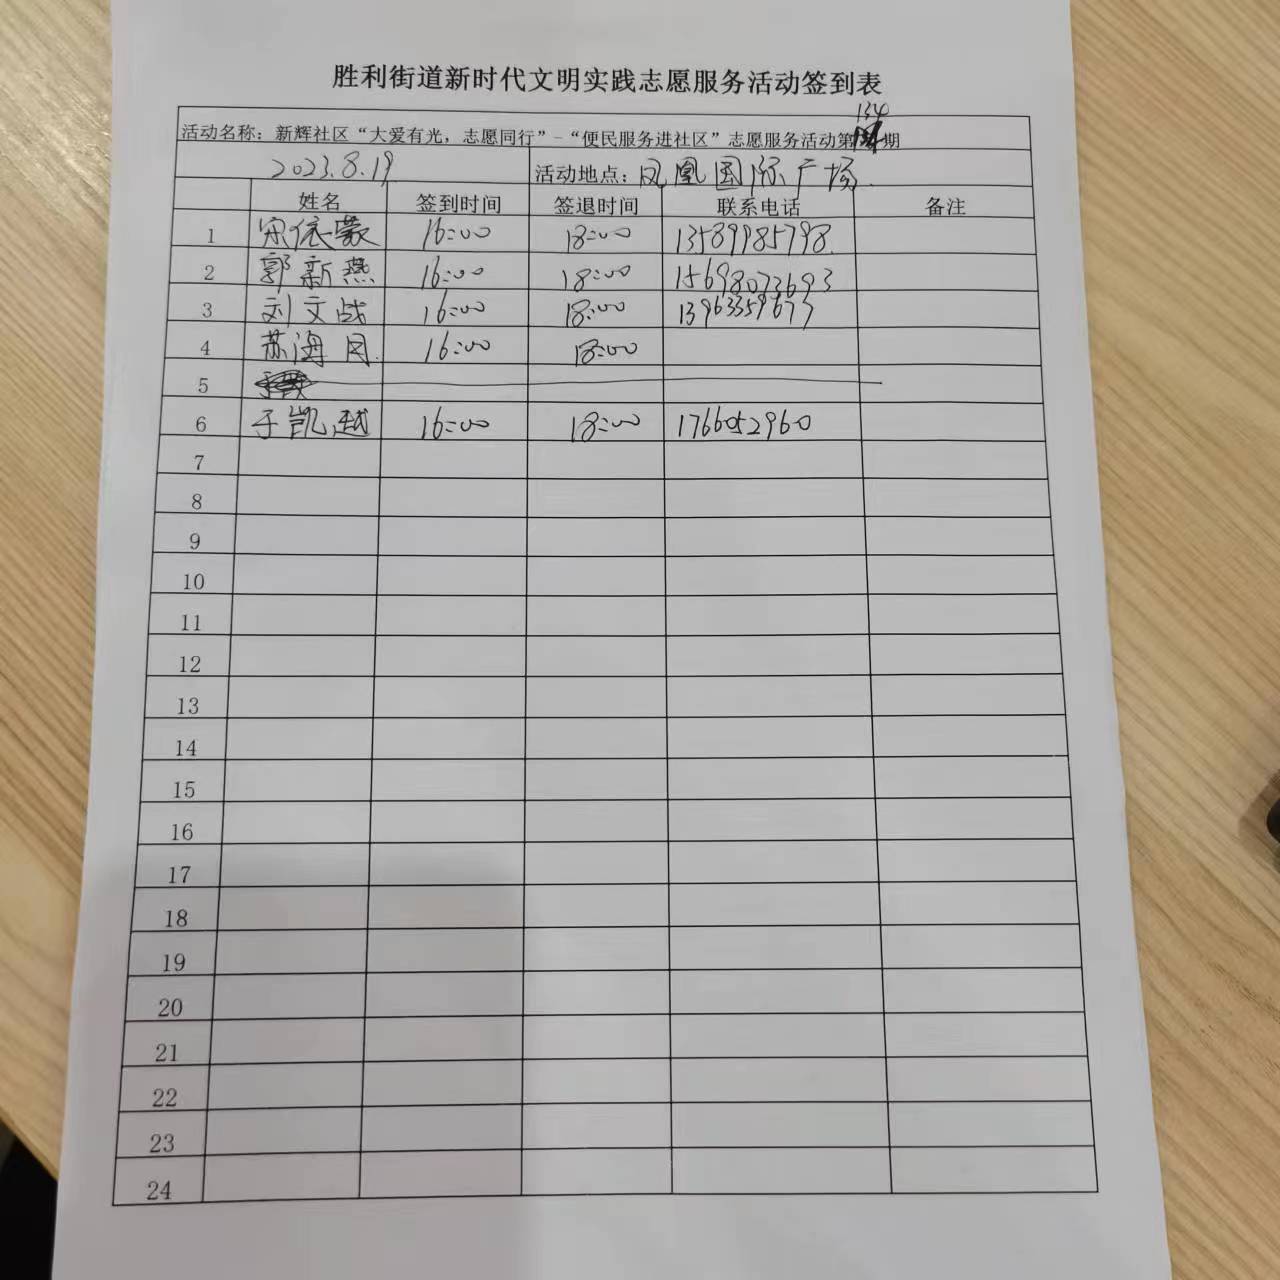 胜利街道新时代文明实践志愿服务活动签到表
活动名称：新辉社区“大爱有光，志愿同行”-“便民服务进社区”志愿服务活动第134期
2023.8.19 活动地点：凤凰国际广场
姓名 签到时间 签退时间 联系电话 备注
1 宋依蒙 16:00 18:00 13589985798
2 郭新燕 16:00 18:00 15698073693
3 刘文战 16:00 18:00 13963359673
4 苏海月 16:00 18:00
5
6 于凯越 16:00 18:00 1766052960
7
8
9
10
11
12
13
14
15
16
17
18
19
20
21
22
23
24